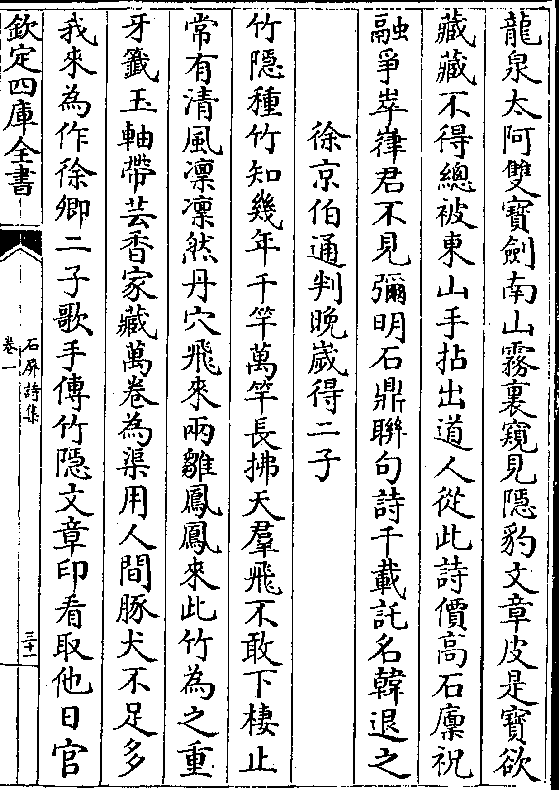 龍泉太阿雙寶劍南山霧裏窺見隱豹文章皮是寶欲
藏藏不得總被東山手拈出道人從此詩價高石廪祝
融爭崒嵂君不見彌明石鼎聯句詩千載託名韓退之
徐京伯通判晚歲得二子
竹隱種竹知幾年千竿萬竿長拂天羣飛不敢下棲止
常有清風凛凛然丹穴飛來兩雛鳳鳳來此竹為之重
牙籤玉軸帶芸香家藏萬卷為渠用人間豚犬不足多
我來為作徐卿二子歌手傳竹隱文章印看取他日官
欽定四庫全書
石屏詩集
卷一
三十一